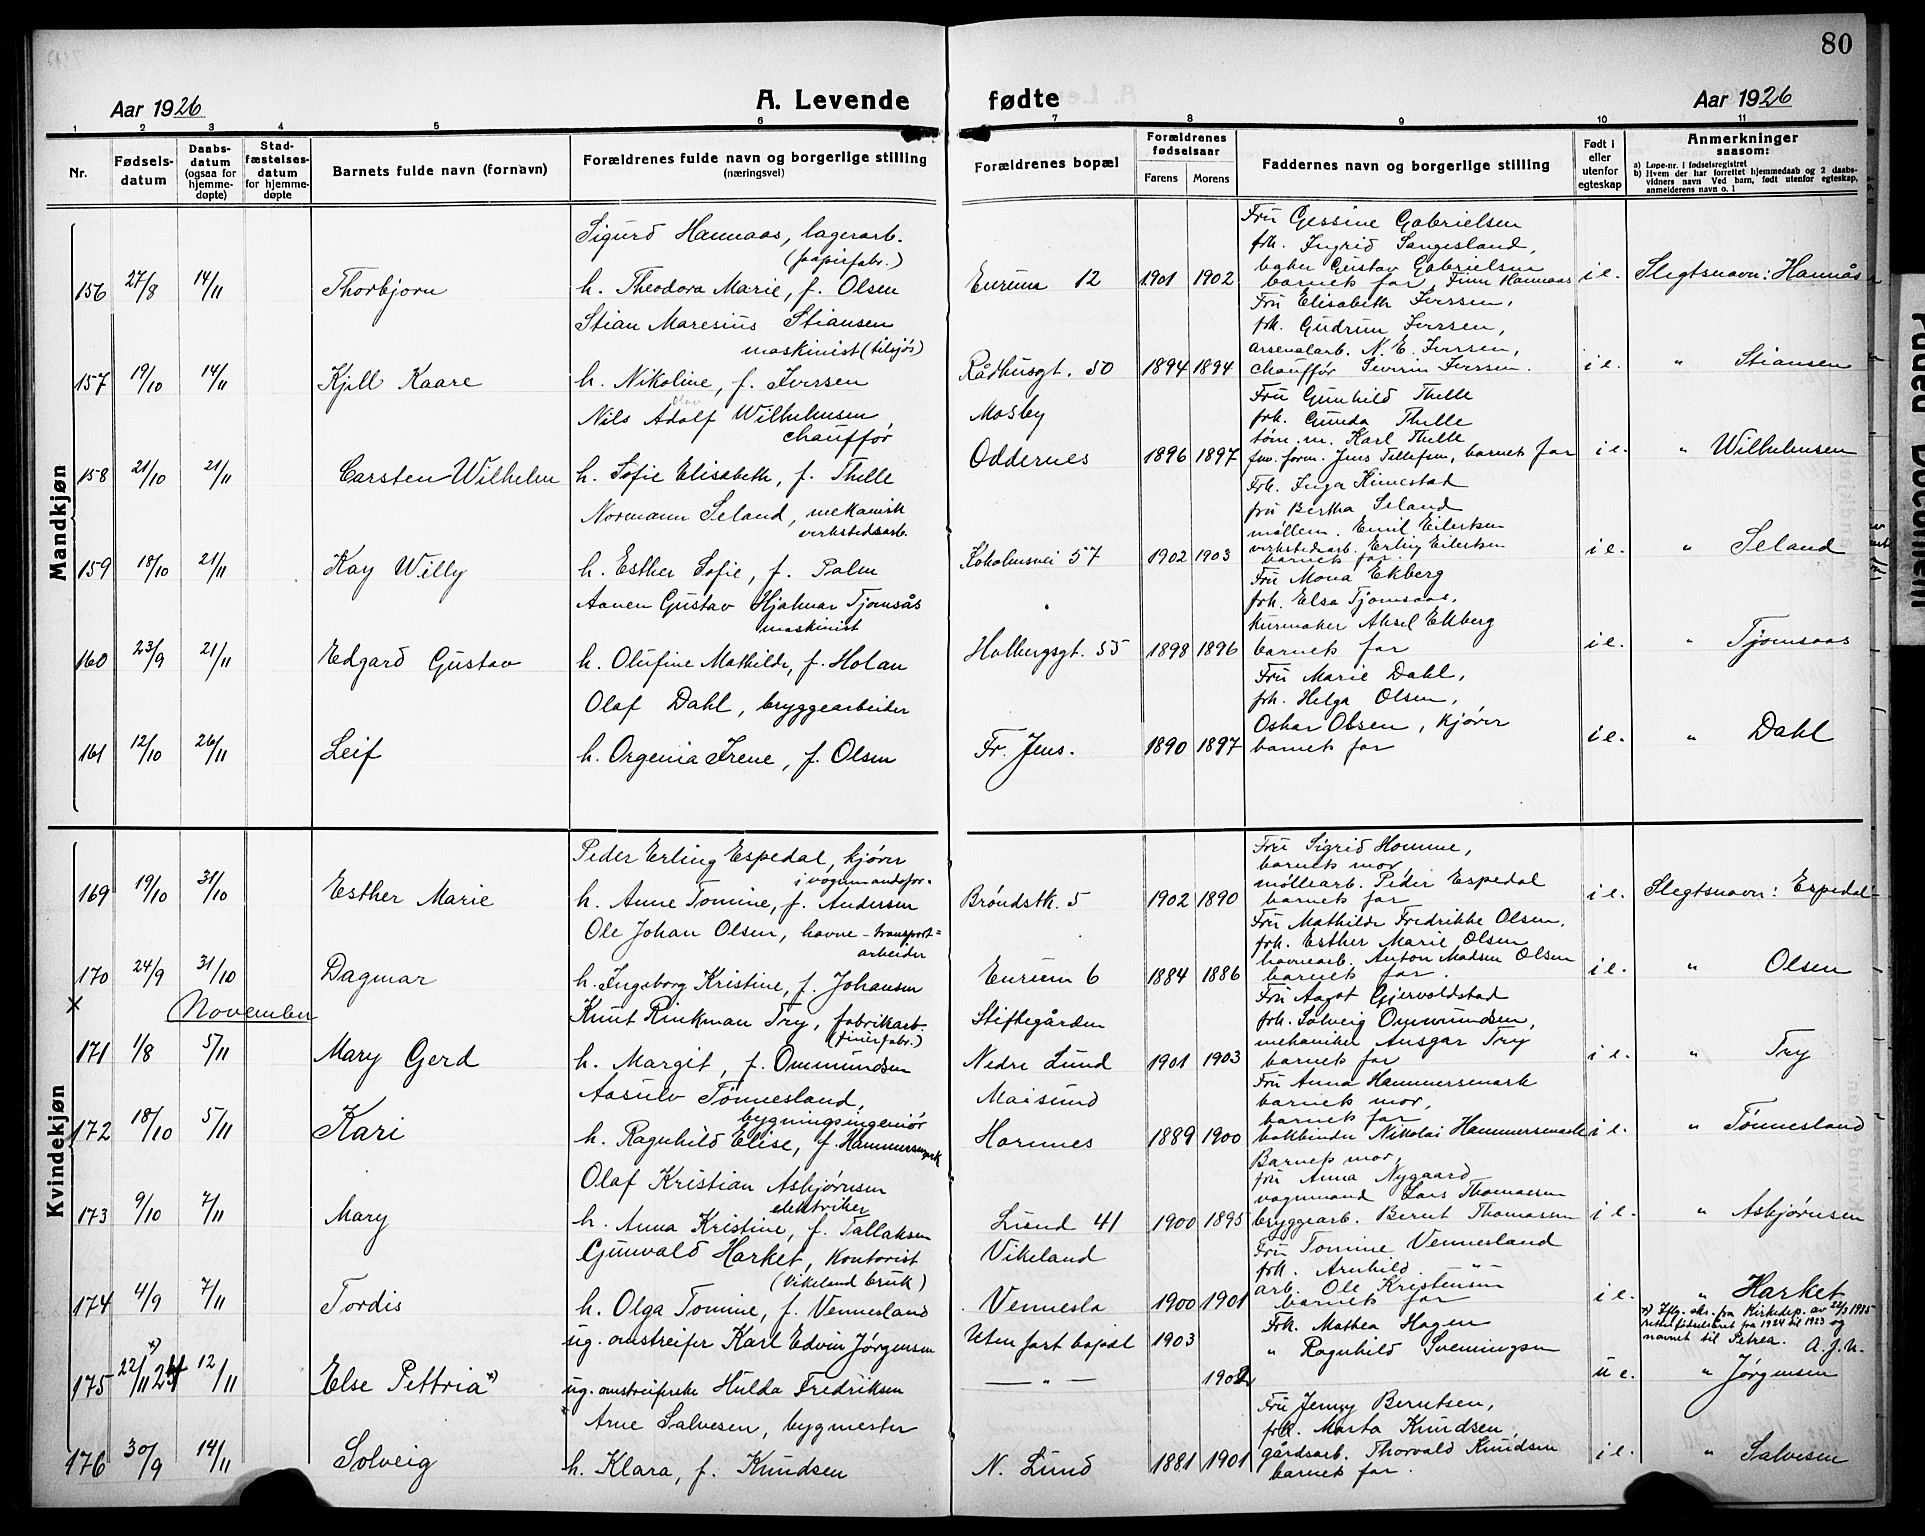 80
Aar 1926
A. Levende fødte
Aar 1926
1 2 3 4 5 6 7 8 9 10 11
Nr.
Fødselsdatum
Daabsdatum (ogsaa for hjemmedøpte)
Stadfæstelsesdatum for hjemmedøpte
Barnets fulde navn (fornavn)
Forældrenes fulde navn og borgerlige stilling (næringsvei)
Forældrenes bopæl
Forældrenes fødselsaar
Farens Morens
Faddernes navn og borgerlige stilling
Født i eller utenfor egteskap
Anmerkninger saasom:
a) Løpe-nr. i fødselsregistret
b) Hvem der har forrettet hjemmedaab og 2 daabsvidners navn Ved barn, født utenfor egteskap, anmelderens navn o. l
Mandkjøn
156 27/8 14/11 Thorbjørn
Sigurd Hannaas, lagerarb.
(papirfabr.)
h. Theodora Marie, f. Olsen
Enrum 12 1901 1902
Fru Gessine Gabrielsen
frk. Ingrid Sangesland,
baker Gustav Gabrielsen
barnets far, Finn Hannaas
i e. Slegtsnavn: Hannås
157 19/10 14/11 Kjell Kaare
Stian Maresius Stiansen
maskinist (tilsjøs)
h. Nikoline, f. Iverssen
Rådhusgt. 50 1894 1894
Fru Elisabeth Iverssen,
frk. Gudrun Iverssen,
arsenalarb. N. E. Iverssen,
chauffør Severin Iverssen.
i e. " Stiansen
158 21/10 21/11 Carsten Wilhelm
Nils Adolf Wilhelmsen
chauffør
h. Sofie Elisabeth, f. Thelle
Mosby
Oddernes 1896 1897
Fru Gunhild Thelle
frk. Gunda Thelle
tøm. m. Karl Thelle
form. Jens Tellefsen, barnets far
i e. " Wilhelmsen
159 18/10 21/11 Kay Willy
Normann Seland, mekanisk
verkstedsarb.
h. Esther Sofie, f. Palm
57 1902 1903
Frk. Inga Kimestad
fru Bertha Seland
møllem. Emil Eilertsen
verkstedsarb. Erling Eilertsen
barnets far
i e. " Seland
160 23/9 21/11 Edgard Gustav
Aanen Gustav Hjalmar Tjomsås
maskinist
h. Olufine Mathilde, f. Holan
Holbergsgt. 55 1898 1896
Fru Mona Ekberg
frk. Elsa Tjomsaas,
Aksel Ekberg
barnets far
i e. " Tjomsaas
161 12/10 26/11 Leif
Olaf Dahl, bryggearbeider
h. Orgenia Irene, f. Olsen
Fr. Jens. 1890 1897
Fru Marie Dahl,
frk. Helga Olsen,
Oskar Olsen, kjører
barnets far
i e. " Dahl
Kvindekjøn
169 19/10 31/10 Esther Marie
Peder Erling Espedal, kjører
i vognmandsfor-
h. Anne Tomine, f. Andersen
Brøndstk. 5 1902 1890
Fru Sigrid Homme,
barnets mor,
møllearb. Peder Espedal
barnets far
i e. Slegtsnavn: Espedal
170 24/9 31/10 Dagmar
Ole Johan Olsen, havne-transport-
arbeider
h. Ingeborg Kristine, f. Johansen
Enrum 6 1884 1886
Fru Mathilde Fredrikke Olsen,
frk. Esther Marie Olsen
havnearb. Anton Madsen Olsen
barnets far.
i e. " Olsen
x November
171 1/8 5/11 Mary Gerd
Knut Rinkman Try, fabrikarb.
(finerfabr.)
h. Margit, f. Ommundsen
Stiftegården
Nedre Lund 1901 1903
Fru Aagot Gjervoldstad
frk. Solveig Ommundsen,
mekaniker Ansgar Try
barnets far
i e. " Try
172 18/10 5/11 Kari
Aasulv Tønnesland,
bygningsingeniør
h. Ragnhild Elise, f. Hammersmark
Moisund
Hornnes 1889 1900
Fru Anna Hammersmark
barnets mor,
barnets far
bokbinder Nikolai Hammersmark
i e. " Tønnesland
173 9/10 7/11 Mary
Olaf Kristian Asbjørnsen
elektriker
h. Anna Kristine, f. Tallaksen
Lund 41 1900 1895
Barnets mor,
fru Anna Nygaard
vognmand Lars Thomassen
bryggearb. Bernt Thomassen
i e. " Asbjørnsen
174 4/9 7/11 Tordis
Gunvald Harket, kontorist
(Vikeland bruk)
h. Olga Tomine, f. Vennesland
Vikeland
Vennesla 1900 1901
Fru Tomine Vennesland
frk. Arnhild. - " -
arb. Ole Kristensen
barnets far
i e. " Harket
175 22/11 24 *) 12/11 Else Pettria *)
ug. omstreifer Karl Edvin Jørgensen
ug. omstreiferske Hulda Fredriksen
Uten fast bopæl 1903
— " — 1902
Frk. Mathea Hagen
" Ragnhild Sveningsen
u e. " Jørgensen
*) Iflg. skr. fra Kirkedep. av 22/3 1935
rettes fødselsåret fra 1924 til 1923 og
navnet til Petrea. A. J. N.
176 30/9 14/11 Solveig
Arne Salvesen, bygmester
h. Klara, f. Knudsen
N. Lund 1881 1901
Fru Jenny Berntsen,
frk. Marta Knudsen,
gårdsarb. Thorvald Knudsen
barnets far.
i e. " Salvesen